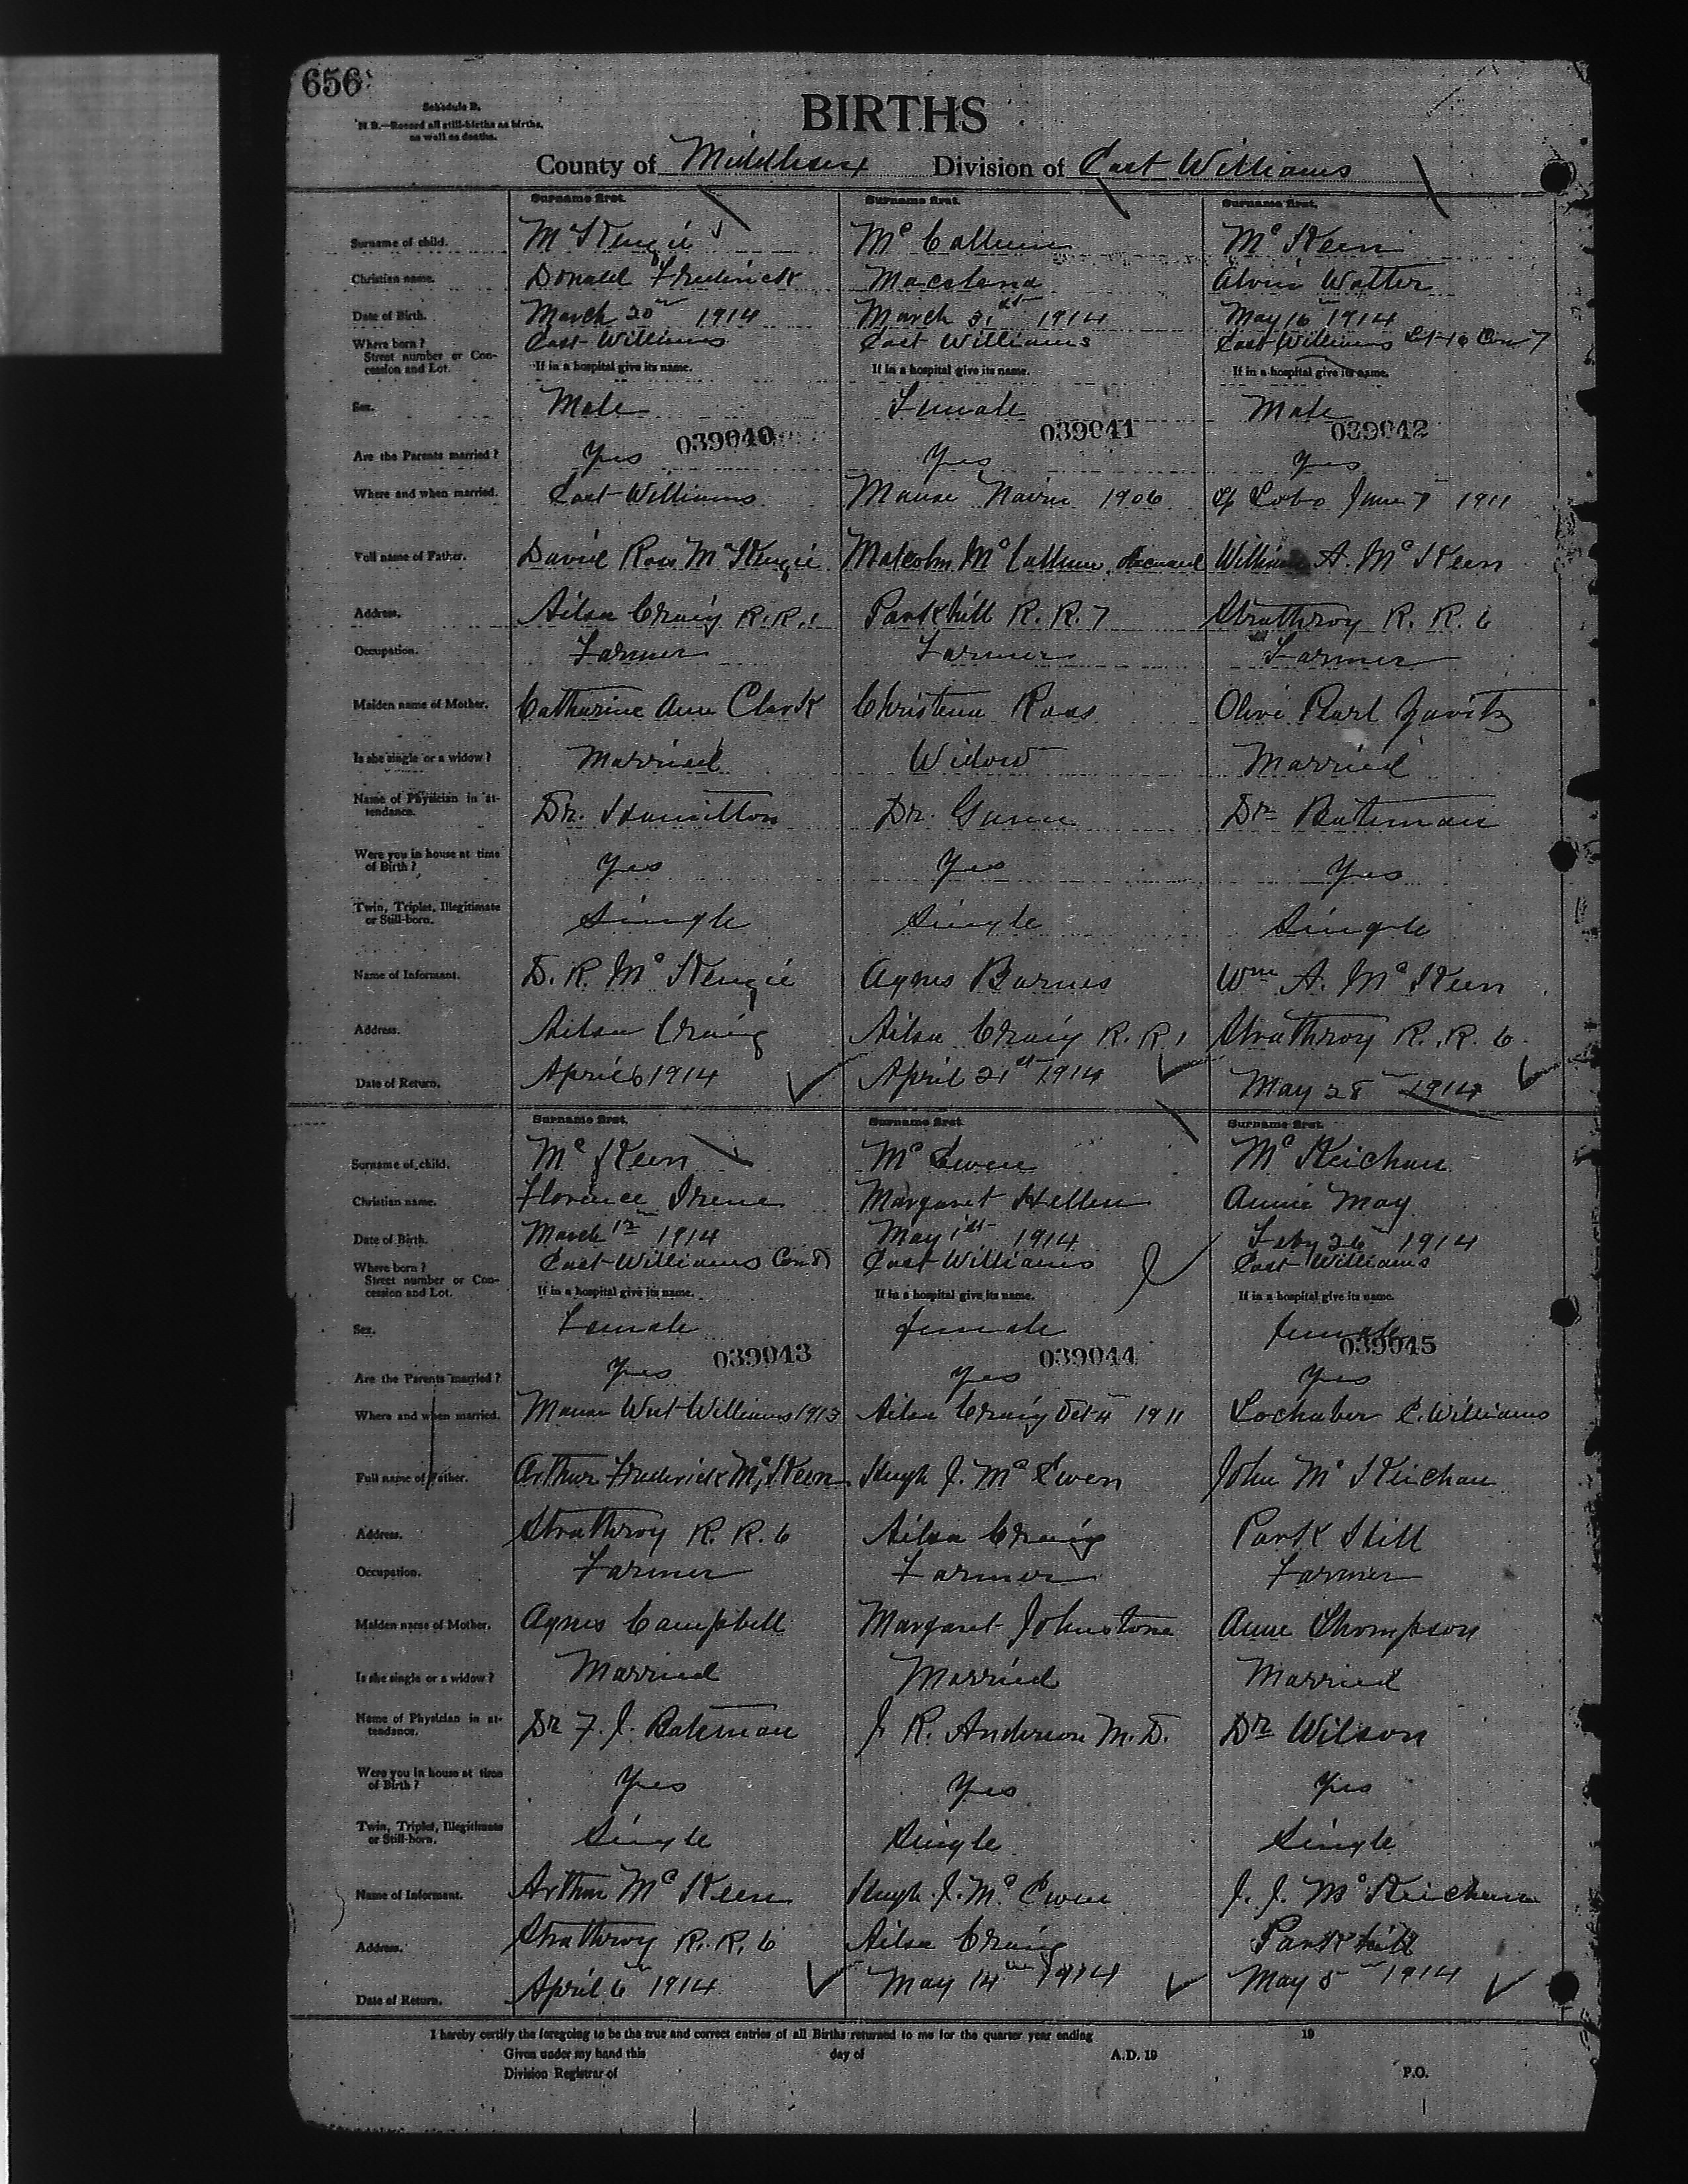 656
Schedule B.
N.B.—Record all still-births as births,
as well as deaths.
BIRTHS
County of Middlesex Division of East Williams
Surname first. Surname first. Surname first.
Surname of child. McKenzie McCallum McKeen
Christian name. Donald Frederick Alvin Walter
Date of Birth. March 20th 1914 March 31st 1914 May 16th 1914
Where born? East Williams East Williams East Williams Lot 16 Con 7
Street number or Con-
cession and Lot. If in a hospital give its name. If in a hospital give its name. If in a hospital give its name.
Sex. Male Female Male
039040 039041 039042
Are the Parents married? Yes Yes Yes
Where and when married. East Williams Manse Nairn 1906 of Lobo June 7 1911
Full name of Father. David Ross McKenzie Malcolm McCallum deceased William A. McKeen
Address. Ailsa Craig R.R. 1 Parkhill R. R. 7 Strathroy R. R. 6
Occupation. Farmer Farmer Farmer
Maiden name of Mother. Catharine Ann Clark Christena Ross Olive Pearl Zavitz
Is she single or a widow? Married Widow Married
Name of Physician in at-
tendance. Dr. Hamilton Dr. Dr Bateman
Were you in house at time
of Birth? Yes Yes Yes
Twin, Triplet, Illegitimate
or Still-born. Single Single Single
Name of Informant. D. R. McKenzie Agnes Barnes Wm A. McKeen
Address. Ailsa Craig Ailsa Craig R. R. 1 Strathroy R. R. 6
Date of Return. April 6 1914 April 21st 1914 May 28 1914
Surname first. Surname first. Surname first.
Surname of child. McKeen McEwen McKeichan
Christian name. Florence Irene Margaret Hellen Annie May
Date of Birth. March 12th 1914 May 1st 1914 Feby 26th 1914
Where born? East Williams Con 8 East Williams East Williams
Street number or Con-
cession and Lot. If in a hospital give its name. If in a hospital give its name. If in a hospital give its name.
Sex. Female female female
039043 039044 039045
Are the Parents married? Yes Yes Yes
Where and when married. Manse West Williams 1913 Ailsa Craig Oct 4 1911 Lochaber E. Williams
Full name of Father. Arthur Frederick McKeen Hugh J. McEwen John McKeichan
Address. Strathroy R. R. 6 Ailsa Craig Park Hill
Occupation. Farmer Farmer Farmer
Maiden name of Mother. Agnes Campbell Margaret Johnstone Anne Thompson
Is she single or a widow? Married Married Married
Name of Physician in at-
tendance. Dr F. J. Bateman J R. Anderson M. D. Dr Wilson
Were you in house at time
of Birth? Yes Yes Yes
Twin, Triplet, Illegitimate
or Still-born. Single Single Single
Name of Informant. Arthur McKeen Hugh J. McEwen J. J. McKeichan
Address. Strathroy R. R. 6 Ailsa Craig Parkhill
Date of Return. April 6th 1914 May 14th 1914 May 5th 1914
I hereby certify the foregoing to be the true and correct entries of all Births returned to me for the quarter year ending 19
Given under my hand this day of A.D. 19
Division Registrar of P.O.